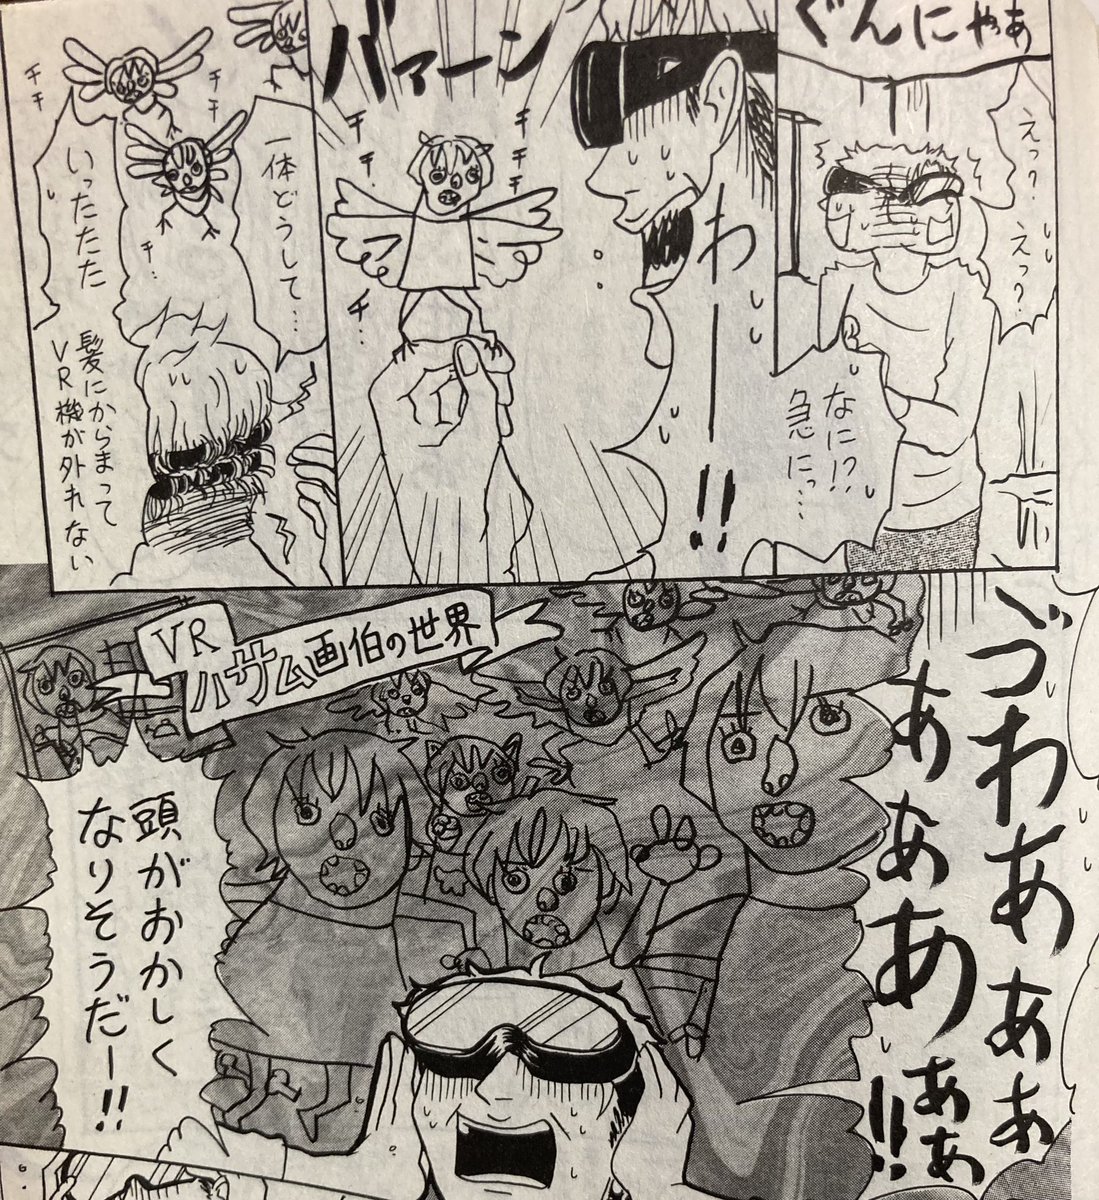 ぐんにゃあ
えっ?
えっ?
なに!?
急にっ…
バァーン
チチ…
チチチチ
チ…
わーー!!
一体どうして…
チチ
チチ
チ…
いったたた
髪にからまって
VR機が外れない
ゔわあああぁ
あああああぁ!!
VR
ハサム画伯の世界
頭がおかしく
なりそうだー!!